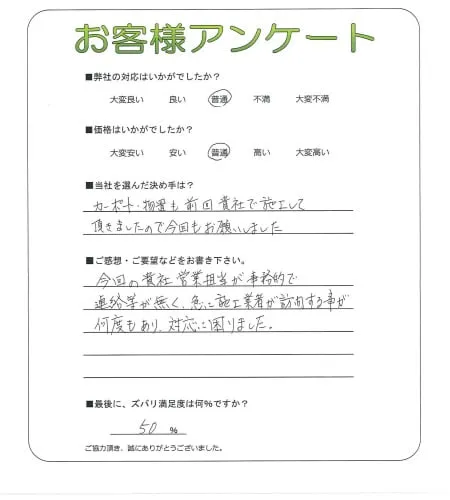 お客様アンケート
■弊社の対応はいかがでしたか？
大変良い 良い 普通 不満 大変不満
■価格はいかがでしたか？
大変安い 安い 普通 高い 大変高い
■当社を選んだ決め手は？
カーポート・物置も前回貴社で施工して
頂きましたので今回もお願いしました
■ご感想・ご要望などをお書き下さい。
今回の貴社営業担当が事務的で
連絡等が無く、急に施工業者が訪問する事が
何度もあり、対応に困りました。
■最後に、ズバリ満足度は何%ですか？
50 %
ご協力頂き、誠にありがとうございました。